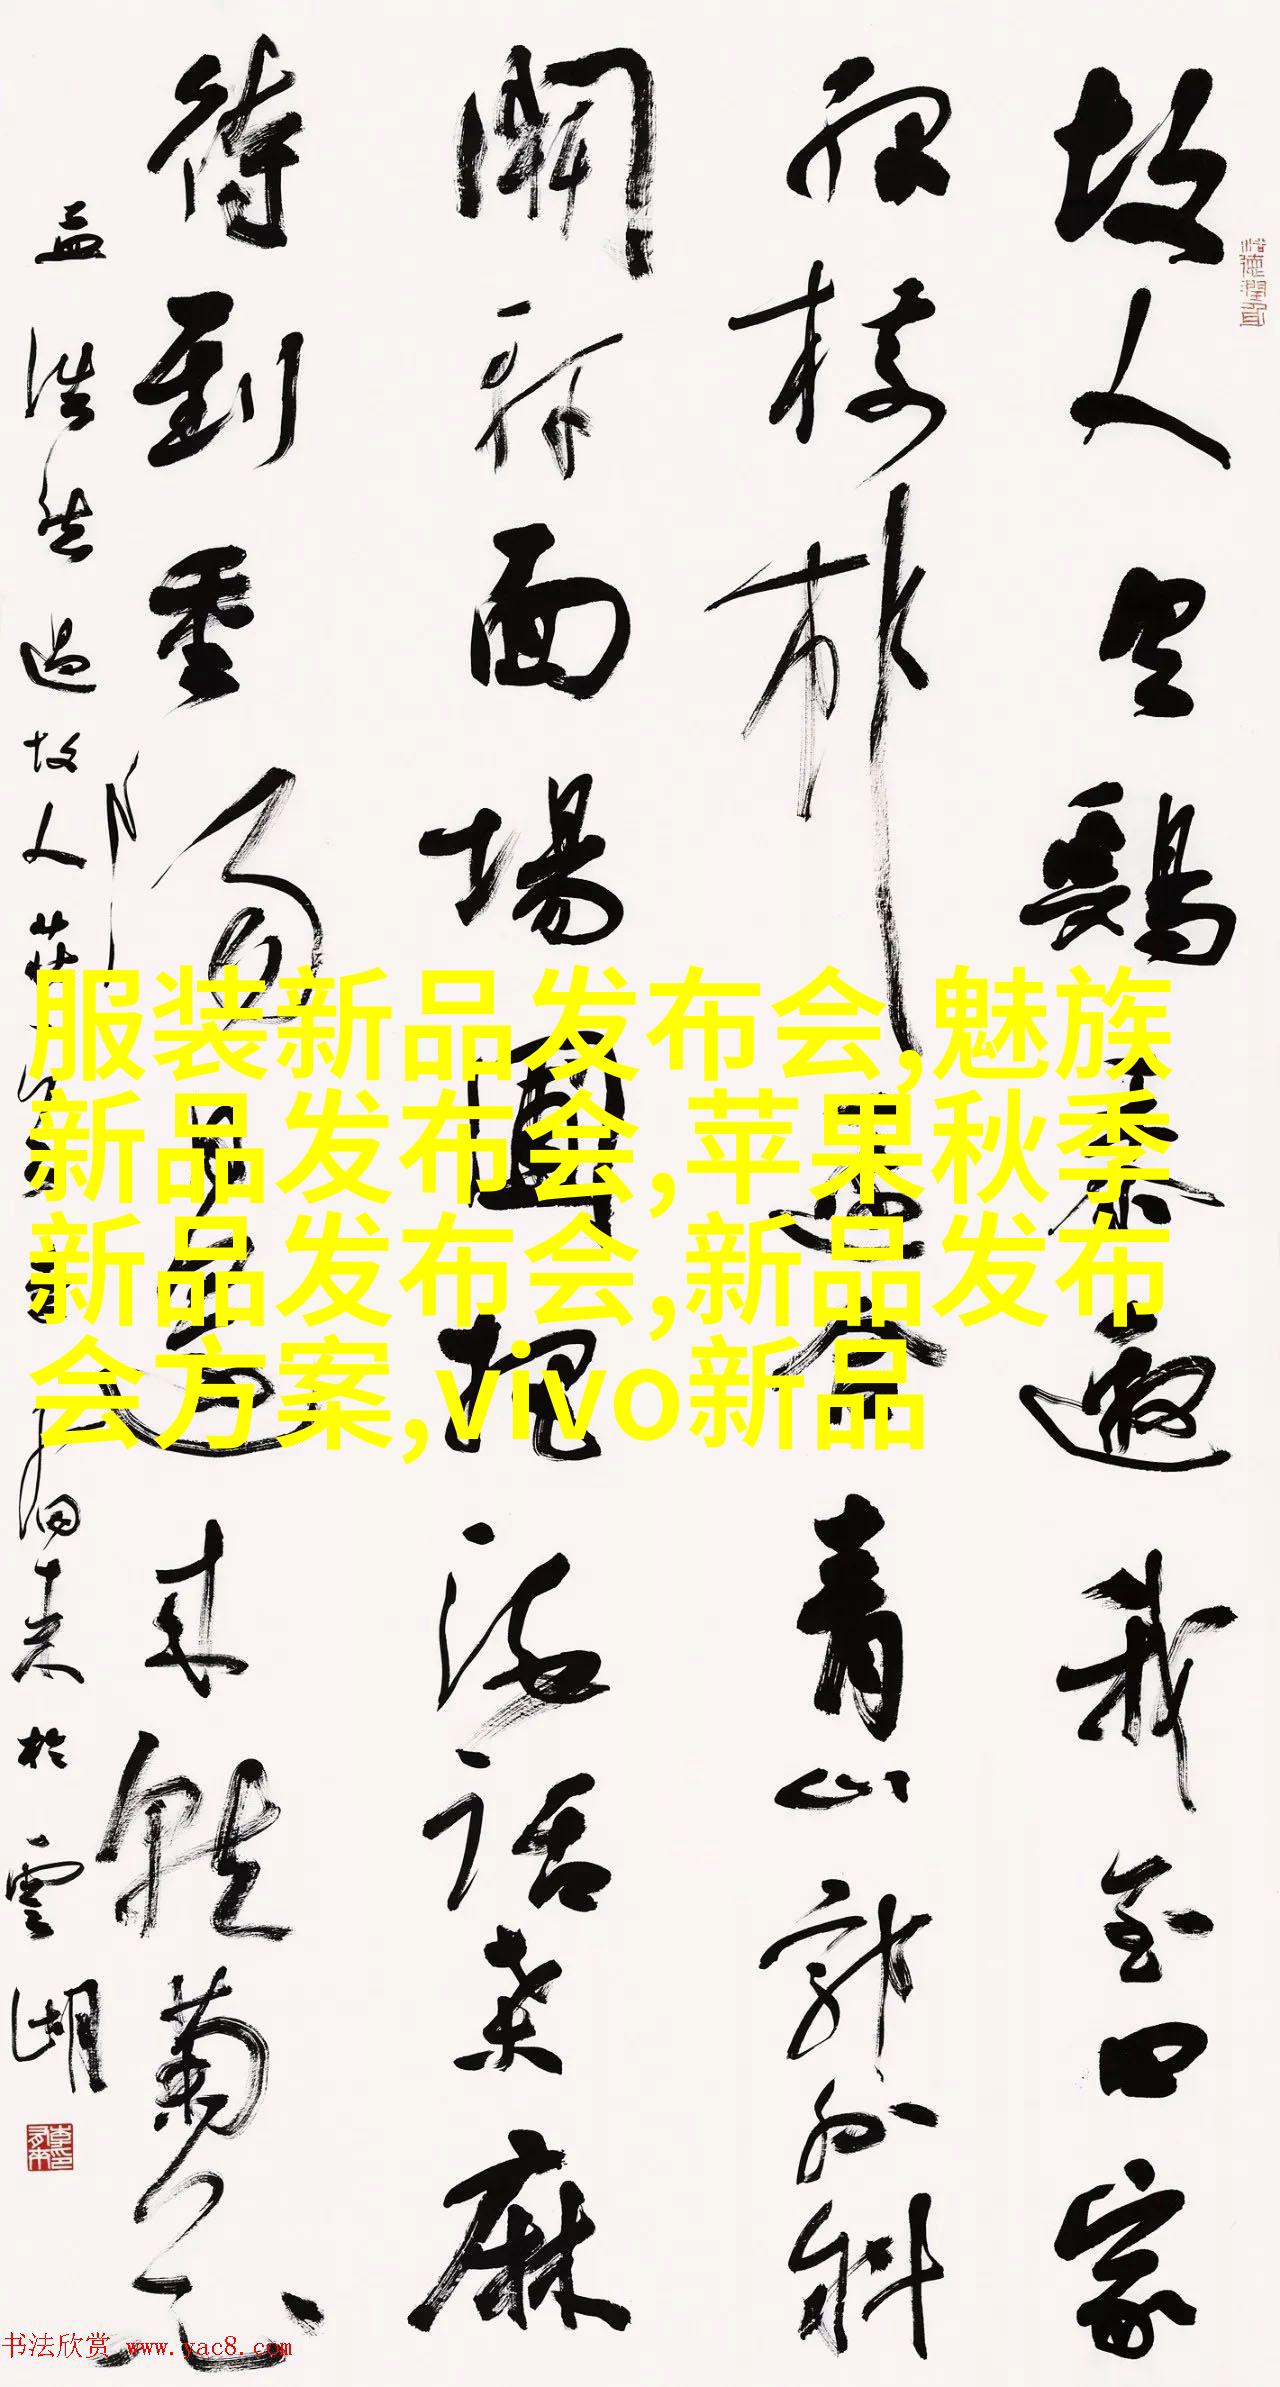 故人具鷄黍邀我至田家
緑樹村邊合青山郭外斜
開軒面場圃把酒話桑麻
待到重陽日還来就菊花
孟浩然過故人莊
来於雲湖
服装新品发布会,魅族
新品发布会,苹果秋季
新品发布会,新品发布
会方案,vivo新品
书法欣赏 www.yac8.com